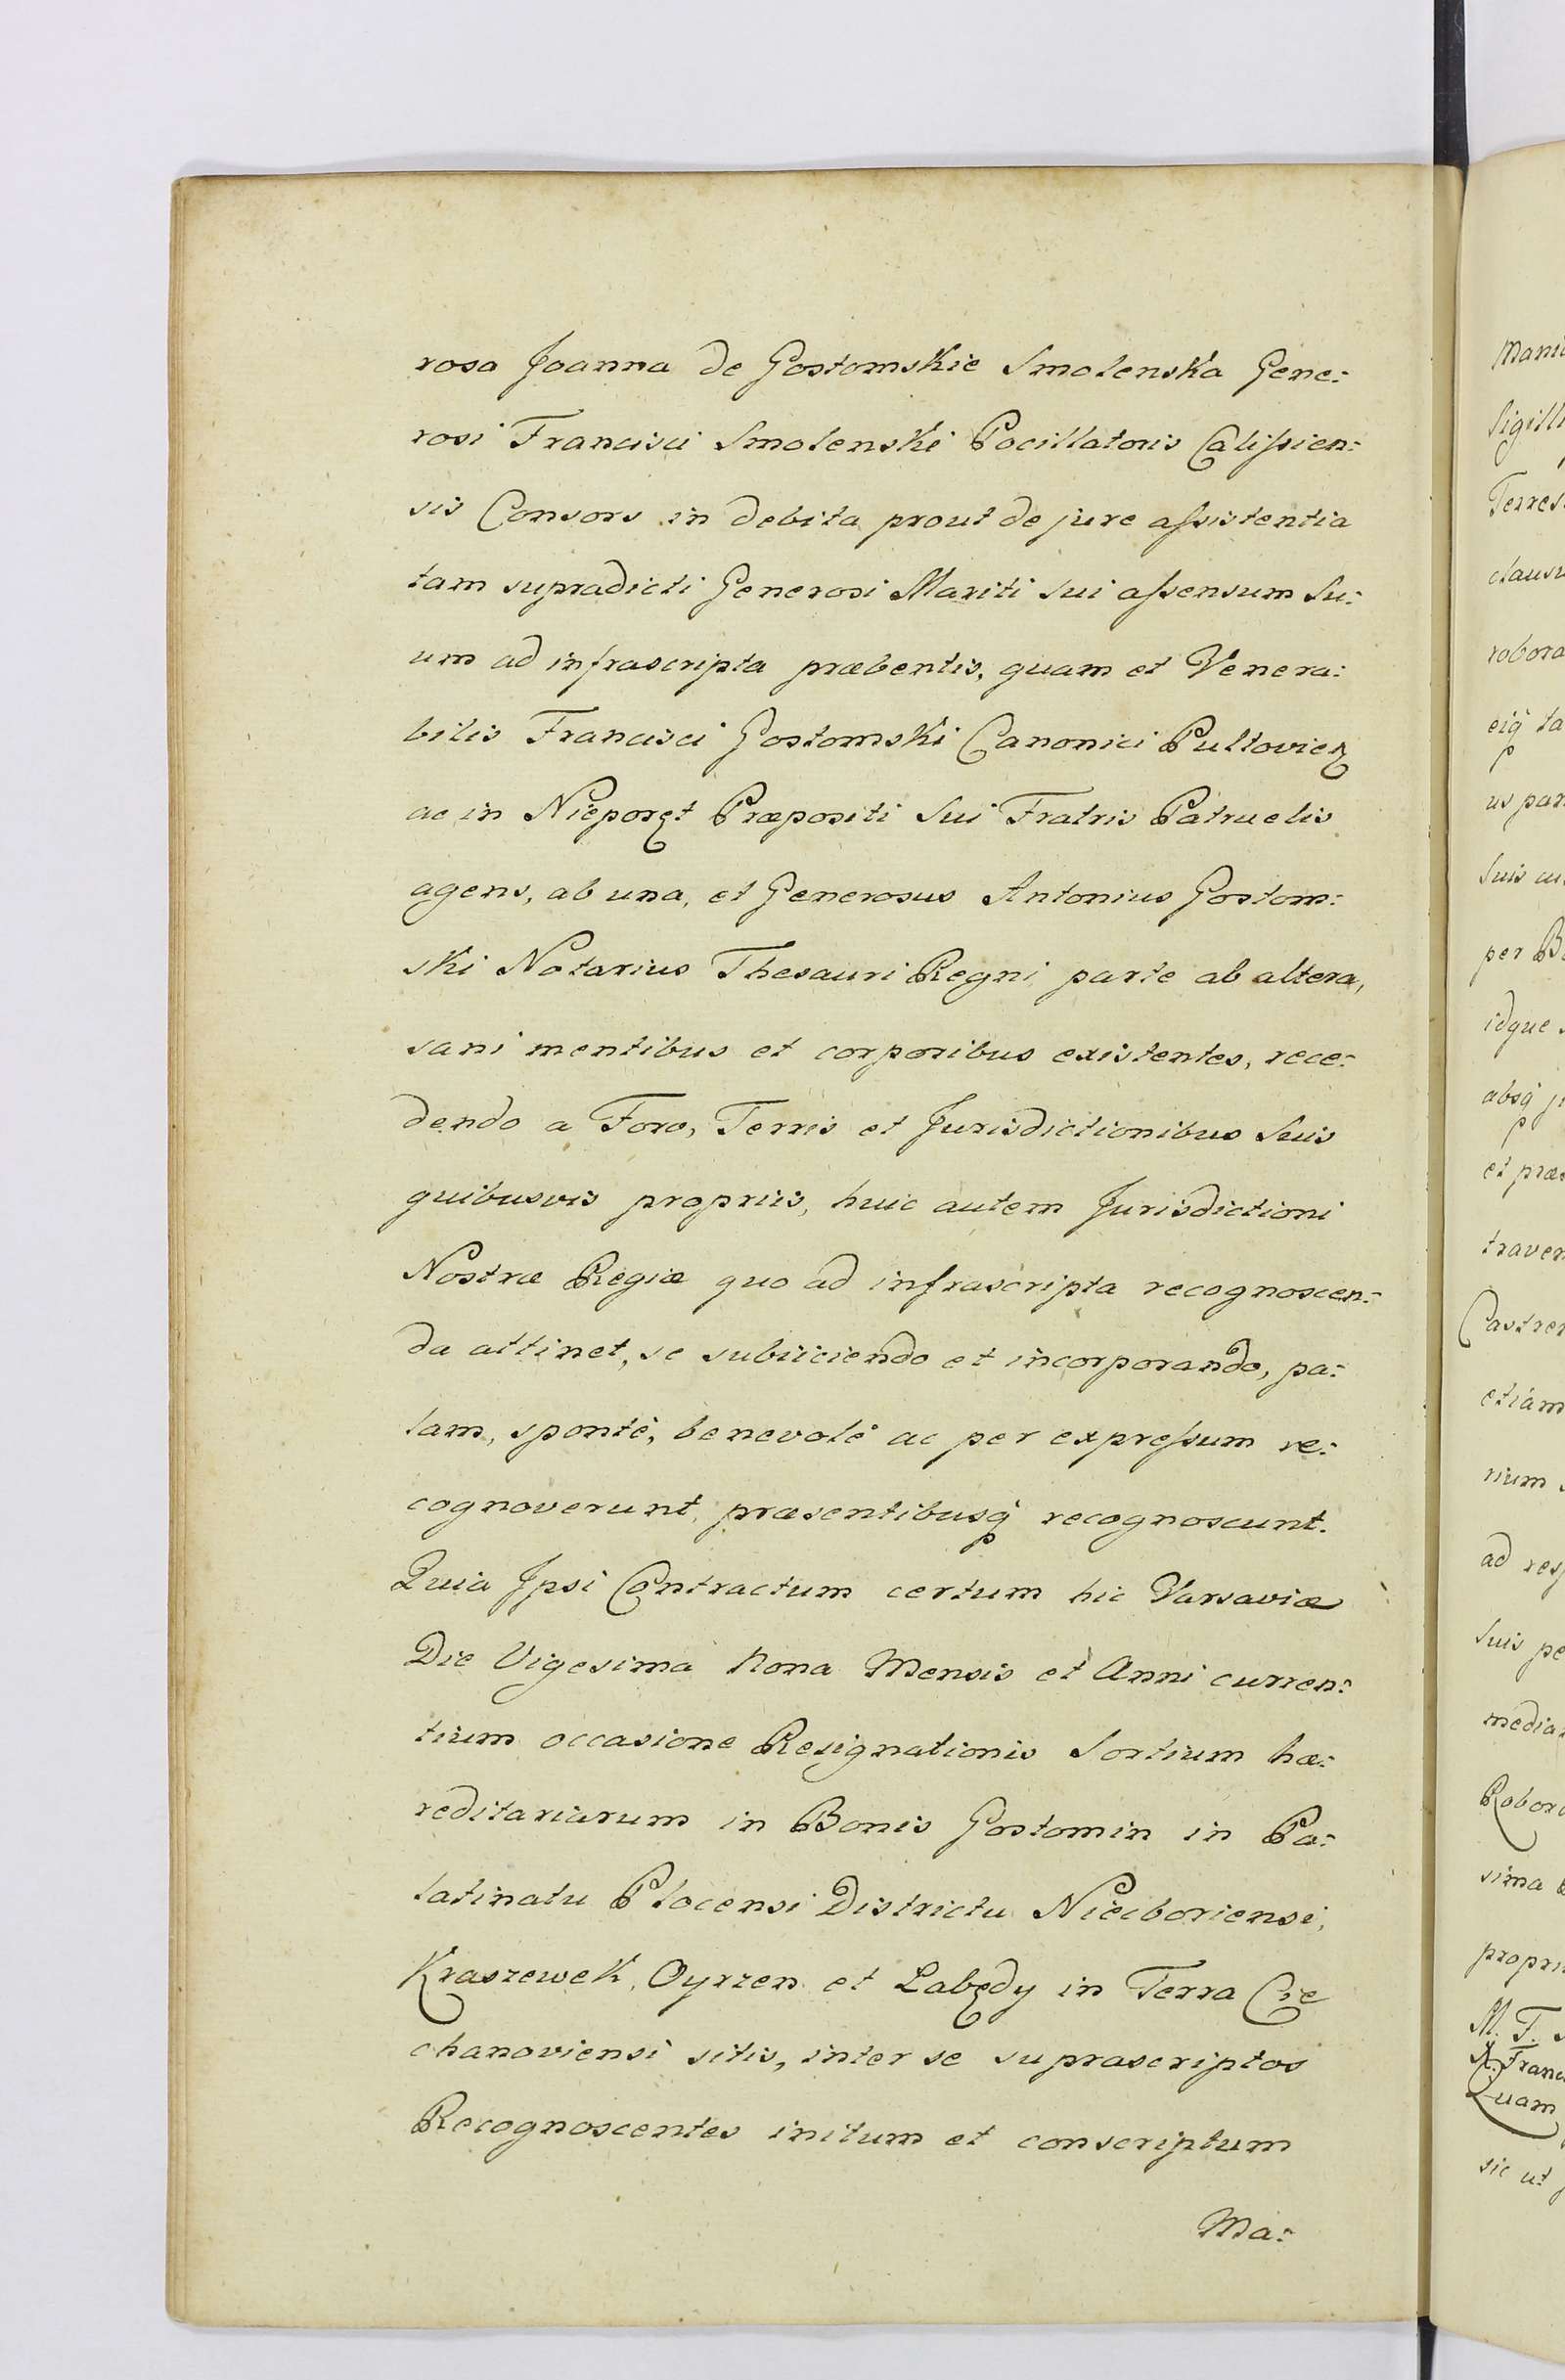 rosa Joanna de Gostomskie Smolenska Gene:
rosi Francisci Smolenski Pocillatoris Calissien:
sis Consors in debita prout de jure assistentia
tam supradicti Generosi Mariti sui assensum Su:
um ad infrascripta præbentis, quam et Venera:
bilis Francisci Gostomski Canonici Pultovien
ac in Nieporęt Præpositi Sui Fratris Patruelis
agens, ab una, et Generosus Antonius Gostom:
ski Notarius Thesauri Regni parte ab altera,
sani mentibus et corporibus existentes, rece:
dendo a Foro, Terris et Jurisdictionibus Suis
quibusvis propriis, huic autem Jurisdictioni
Nostræ Regiæ quo ad infrascripta recognoscen:
da attinet, se subiiciendo et incorporando, pa:
lam, spontè, benevolè ac per expressum re:
cognoverunt, præsentibusq recognoscunt.
Quia Ipsi Contractum certum hic Varsaviæ
Die Vigesima Nona Mensis et Anni curren:
tium occasione Resignationis Sortium hæ:
reditariarum in Bonis Gostomin in Pa:
latinatu Plocensi Districtu Niedboriensi,
Kraszewek, Oyrzen et Labędy in Terra Cie
chanoviensi sitis, inter se suprascriptos
Recognoscentes initum et conscriptum
Ma:
Sigilli
Terres
clausu
robora
eiq ta
us par
Suis
per
idque
absq
et præ
traven
Castren
etiam
rium
ad res
Suis pe
media
Robora
sima
propri
M. T.
Quam
sic ut